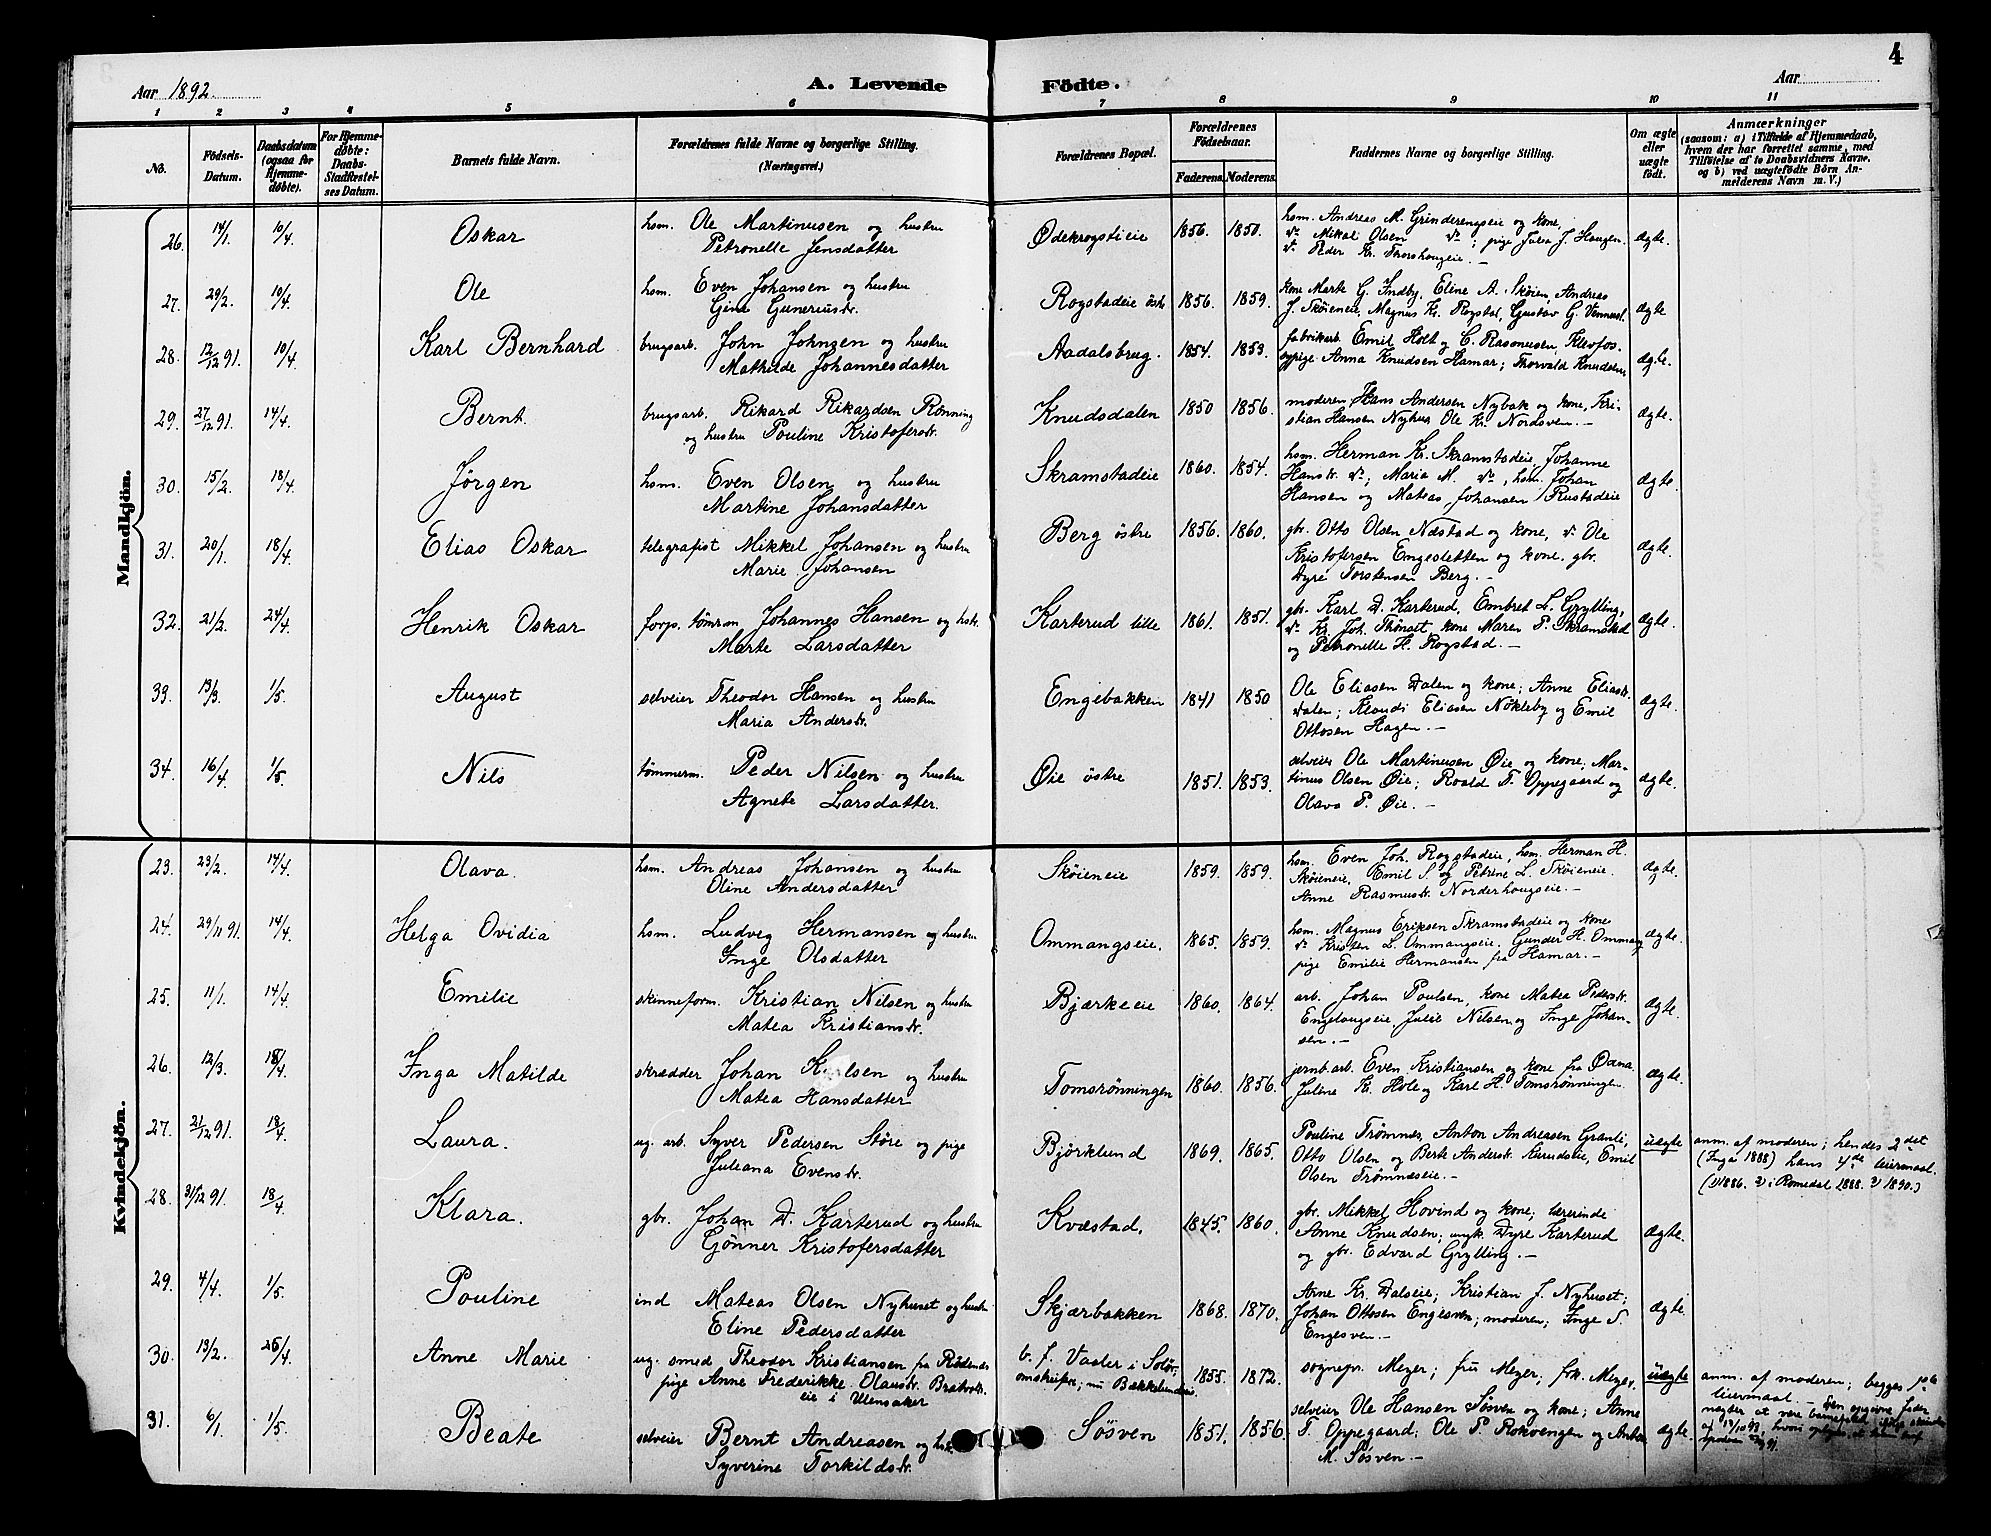 4
Aar 1892.
A. Levende Födte.
Aar
1 2 3 4 5 6 7 8 9 10 11
No.
Födsels-Datum.
Daabsdatum (ogsaa for Hjemmedöbte).
For Hjemmedöbte: Daabs-Stadfæstelses Datum.
Barnets fulde Navn.
Forældrenes fulde Navne og borgerlige Stilling.
(Næringsvei.)
Forældrenes Bopæl.
Forældrenes Födselsaar.
Faderens. Moderens.
Faddernes Navne og borgerlige Stilling.
Om ægte eller uægte födt.
Anmærkninger
(saasom: a) i Tilfælde af Hjemmedaab, hvem der har forrettet samme, med Tilföielse af to Daabsvidners Navne. og b) ved uægtefödte Börn Anmelderens Navn m. V.)
Mandkjön.
26. 14/1. 10/4. Oskar hsm. Ole Martinusen og hustru Petronelle Jensdatter Ødekrogstieie 1856. 1850. hsm. Andreas M. Grinderengseie og kone, do Mikal Olsen do; pige Julia J. Haugen. do Peder Kr. Thorshaugeie. — ægte.
27. 29/2. 10/4. Ole hsm. Even Johansen og hustru Gina Guneriusdr. Rogstadeie östr. 1856. 1859. kone Marte G. Indby, Eline A. Skøien, Andreas J. Skøieneie, Magnus Kr. Rogstad, Gustav G. ægte
28. 12/12 91. 10/4. Karl Bernhard brugsarb. John Johnsen og hustru Mathilde Johannesdatter Aadalsbrug. 1854. 1853. fabrikarb. Emil Holt og C. Rasmusen, Klevfos. sypige Anna Knudsen Hamar; Thorvald Knudsen ægte.
29. 27/12 91. 14/4. Bernt. brugsarb. Rikard Rikardsen Rønning og hustru Pouline Kristofersdr. Knudsdalen 1850 1856. moderen, Hans Andersen Nybak og kone, Kristian Hansen Nyhus, Ole Kr. Nordsven. — ægte.
30. 15/2. 18/4. Jørgen hsm. Even Olsen og hustru Martine Johansdatter Skramstadeie 1860. 1854. hsm. Herman K. Skramstadeie, Johanne Hansdr. do; Maria M. do, hsm. Johan Hansen og Mateas Johansen Rustadeie ægte.
31. 20/1. 18/4. Elias Oskar telegrafist Mikkel Johansen og hustru Marie Johansen Berg østre 1856. 1860. gbr. Otto Olsen Næstad og kone, do Ole Kristofersen Engesletten og kone. gbr. Dyre Torstensen Berg. — ægte.
32. 21/2. 24/4. Henrik Oskar forp. tømrm Johannes Hansen og hstr. Marte Larsdatter Karterud lille 1861. 1851. gbr. Karl D. Karterud, Embret L. Grylling, do Kr. Joh. Thønset kone Maren P. Skramstad og Petronelle H. Rogstad. — ægte.
33. 13/3. 1/5. August selveier Theodor Hansen og hustru Maria Andersdr. Engebakken 1841 1850 Ole Eliasen Dalen og kone; Anne Eliasdr. Dalen; Klaudi Eliasen Nøkleby og Emil Ottosen Hagen. — ægte.
34. 16/4. 1/5. Nils tømmerm. Peder Nilsen og hustru Agnete Larsdatter. Øie østre 1851. 1853. selveier Ole Martinusen Øie og kone, Martinus Olsen Øie; Roald T. Oppegaard og Olava P. Øie. — ægte.
Kvindekjön.
23. 23/2. 14/4. Olava. hsm. Andreas Johansen og hustru Oline Andersdatter Skøieneie 1859. 1859. hsm. Even Joh. Rogstadeie, hsm. Herman H. Skøieneie, Emil S og Petrine L. Skøieneie. Anne Rasmusdr. Norderhougseie. — ægte.
24. 29/11 91. 14/4. Helga Ovidia hsm. Ludvig Hermansen og hustru Inge Olsdatter Ommangseie. 1865. 1859. hsm. Magnus Eriksen Skramstadeie og kone do Kristen L. Ommangseie, Gunder H. Ommang pige Emilie Hermansen fra Hamar. — ægte.
25. 11/1. 14/4. Emilie skinneform. Kristian Nilsen og hustru Matea Kristiansdr. Bjærkeeie 1860. 1864. arb. Johan Poulsen, kone Matea Pedersdr. Engelaugseie, Julie Nilsen og Inge Johansen. — ægte.
26. 12/3. 18/4. Inga Matilde skrædder Johan Karlsen og hustru Matea Hansdatter Tomsrønningen 1860. 1856. jernb. arb. Even Kristiansen og kone fra Juline K. Hol og Karl H. Tomsrønningen. ægte.
27. 21/12 91. 18/4. Laura. ug. arb. Syver Pedersen Støre og pige Juliana Evensdr. Bjørklund 1869. 1865. Pouline Trømnes, Anton Andreasen Granli, Otto Olsen og Berte Andersdr. Emil Olsen Trømnæseie. — uægte anm. af moderen; hendes 2det (Inga 1888) hans 4de leiermaal. (1) 1886. 2) i Romedal 1888. 3) 1890.)
28. 31/12 91. 18/4. Klara. gbr. Johan D. Karterud og hustru Gønner Kristofersdatter Kvæstad. 1845. 1860. gbr. Mikkel Hovind og kone; lærerinde Anne Knudsen; ungk. Dyre Karterud og gbr. Edvard Grylling. — ægte.
29. 4/4. 1/5. Pouline ind Mateas Olsen Nyhuset og hustru Eline Pedersdatter Skjærbakken 1868. 1870. Arne Kr. Dalseie; Kristian J. Nyhuset; Johan Ottosen Engesven; moderen; Inge S. Engesven. — ægte.
30. 13/2. 25/4. Anne Marie ug. smed Theodor Kristiansen fra Rödenes pige Anne Frederikke Olausdr. eie i Ulensaker b. f. Vaaler i Solør, nu Bækkelundeie 1855. 1872. sognepr. Meyer; fru Meyer, frk. Meyer. uægte anm. af moderen; begges 1ste leiermaal. — Den opgivne fader nægter at være barnefad
31. 6/1. 1/5. Beate selveier Bernt Andreasen og hstr. Syverine Torkildsdr. Søsven 1851. 1856. selveier Ole Hansen Søsven og kone; Anne T. Oppegaard; Ole P. Rokvengen og M. Søsven. — ægte.